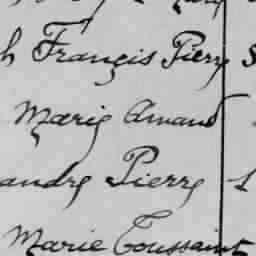 h François Pierre S
Marie Amand
andre Pierre L
Marie Toussaint